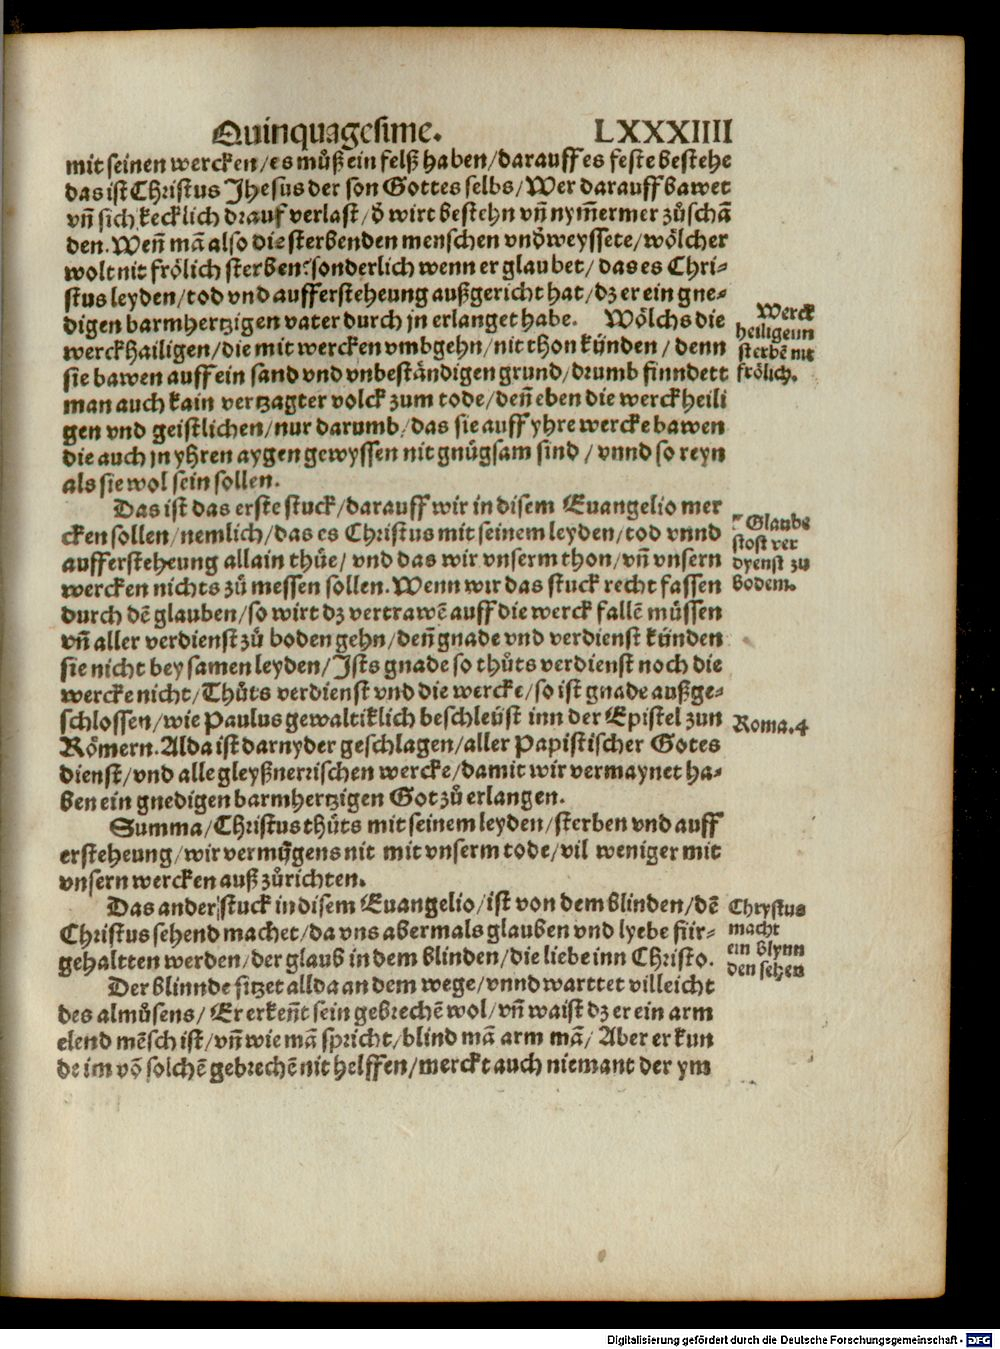 Quinquagesime. LXXXIIII
mit seinen wercken/es můß ein felß haben/darauff es feste bestehe
das ist Christus Jhesus der son Gottes selbs/Wer darauff bawet
vñ sich kecklich drauf verlast/ð wirt bestehn vñ nym̃ermer zůschã
den. Weñ mã also die sterbenden menschen vnðweyssete/wölcher
wolt nit frölich sterben? sonderlich wenn er glaubet/das es Chri⸗
stus leyden/tod vnd auffersteheung außgericht hat/dz er ein gne⸗
digen barmhertzigen vater durch jn erlanget habe. Wölchs die
werckhailigen/die mit wercken vmbgehn/nit thon künden/denn
sie bawen auff ein sand vnd vnbeständigen grund/drumb finndett
man auch kain vertzagter volck zum tode/deñ eben die werckheili
gen vnd geistlichen/nur darumb/das sie auff yhre wercke bawen
die auch jn yhren aygen gewyssen nit gnůgsam sind/vnnd so reyn
als sie wol sein sollen.
Werck
heiligenn
sterbẽ nit
frölich.
Das ist das erste stuck/darauff wir in disem Euangelio mer
cken sollen/nemlich/das es Christus mit seinem leyden/tod vnnd
auffersteheung allain thüe/vnd das wir vnserm thon/vñ vnsern
wercken nichts zů messen sollen. Wenn wir das stuck recht fassen
durch dẽ glauben/so wirt dz vertrawẽ auff die werck fallẽ müssen
vñ aller verdienst zů boden gehn/deñ gnade vnd verdienst künden
sie nicht bey samen leyden/Ists gnade so thůts verdienst noch die
wercke nicht/Thůts verdienst vnd die wercke/so ist gnade außge⸗
schlossen/wie Paulus gewaltiklich beschleüst inn der Epistel zun
Römern. Alda ist darnyder geschlagen/aller Papistischer Gotes
dienst/vnd alle gleyßnerrischen wercke/damit wir vermaynet ha⸗
ben ein gnedigen barmhertzigen Got zů erlangen.
Glaube
stost ver
dyenst zu
bodem.
Roma. 4
Summa/Christus thůts mit seinem leyden/sterben vnd auff
ersteheung/wir vermügens nit mit vnserm tode/vil weniger mit
vnsern wercken auß zůrichten.
Das ander stuck in disem Euangelio/ist von dem blinden/dẽ
Christus sehend machet/da vns abermals glauben vnd lyebe für⸗
gehaltten werden/der glaub in dem blinden/die liebe inn Christo.
Chrystus
macht
ein blynn
den sehen
Der blinnde sitzet allda an dem wege/vnnd warttet villeicht
des almůsens/Er erkeñt sein gebrechẽ wol/vñ waist dz er ein arm
elend mẽsch ist/vñ wie mã spricht/blind mã arm mã/Aber er kun
de im võ solchẽ gebrechẽ nit helffen/merckt auch niemant der ym
Digitalisierung gefördert durch die Deutsche Forschungsgemeinschaft - DFG